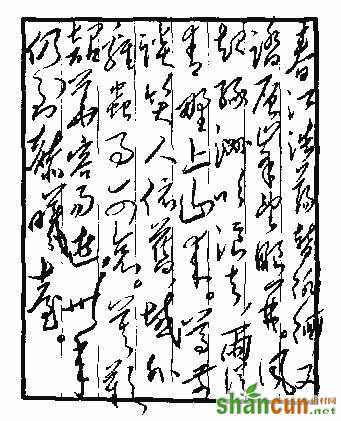 春江浩蕩暫徘徊又
踏层峯望眼开。風
起綠洲吹浪去,雨從
青野上山来。尊前
談笑人依舊,域外
雞蟲事可哀。莫歎
韶華容易逝,卅年
仍到赫曦臺。
shancun
.net